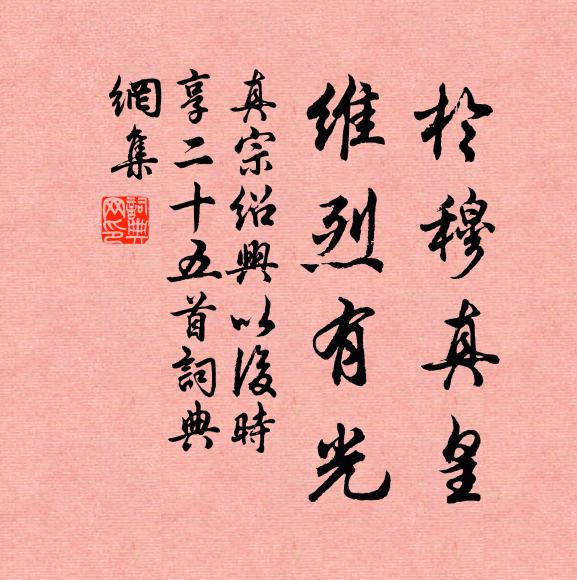 於穆真皇
維烈有光
真宗紹興以後時
享二十五首詞典
網集
詞典
网印